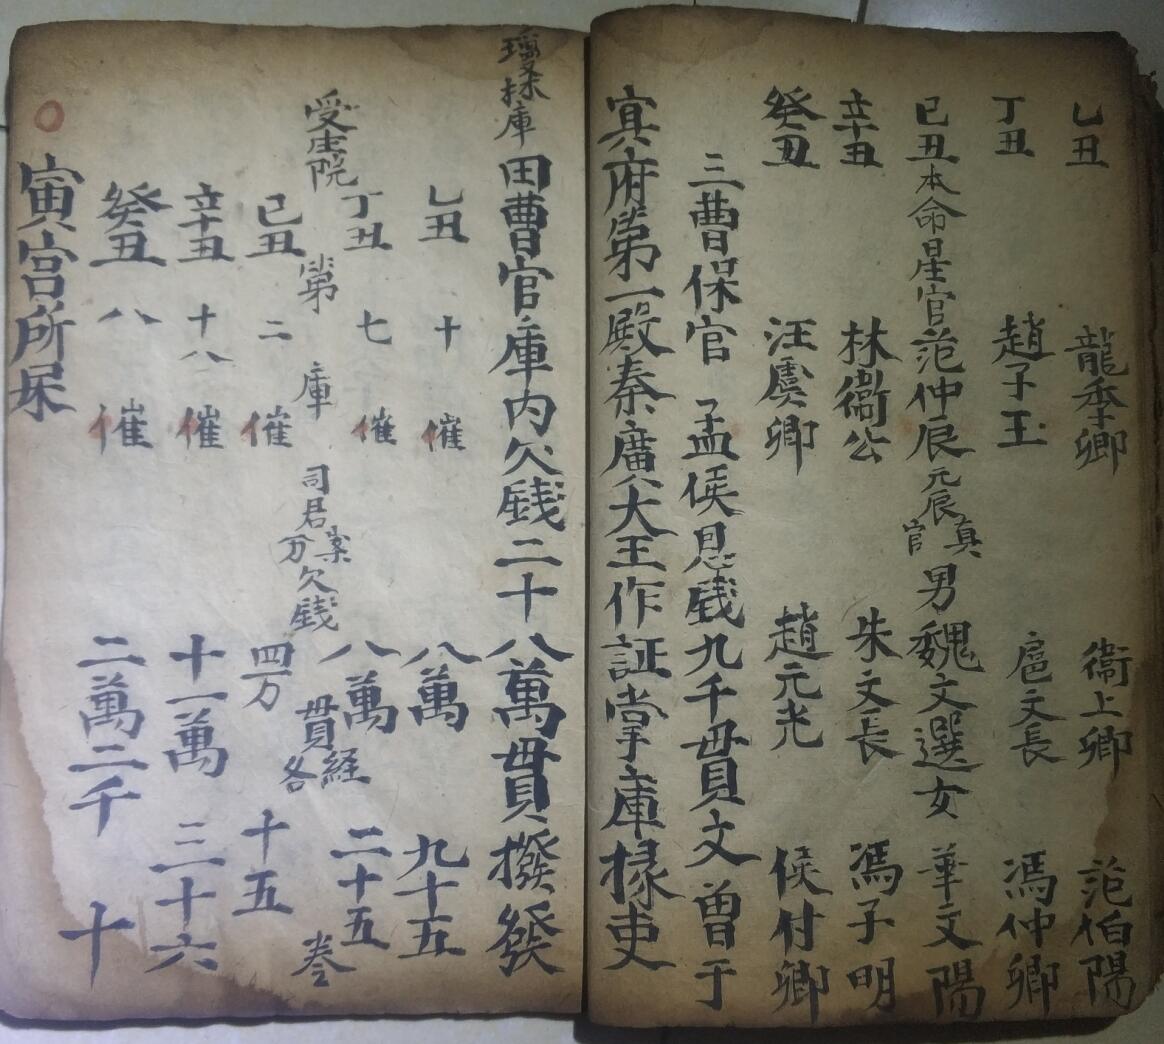 乙丑 龍季卿 衞上卿 范伯陽
丁丑 趙子玉 扈文長 馮仲卿
己丑本命星官范仲辰元辰真官男魏文選女華文陽
辛丑 林衞公 朱文長 馮子明
癸丑 汪虞卿 趙元光 侯付卿
三曹保官 孟侯恩錢九千貫文曾于
冥府第一殿秦廣大王作証掌庫掾吏
庫田曹官庫内欠錢二十八萬貫撥發
乙丑 十 催 八萬 九十五
丁丑 七 催 八萬 二十五
受生院 第 庫 司君案分欠錢 貫経各 卷
己丑 二 催 四万 十五
辛丑 十八 催 十一萬 三十六
癸丑 八 催 二萬二千 十
寅宫所屎